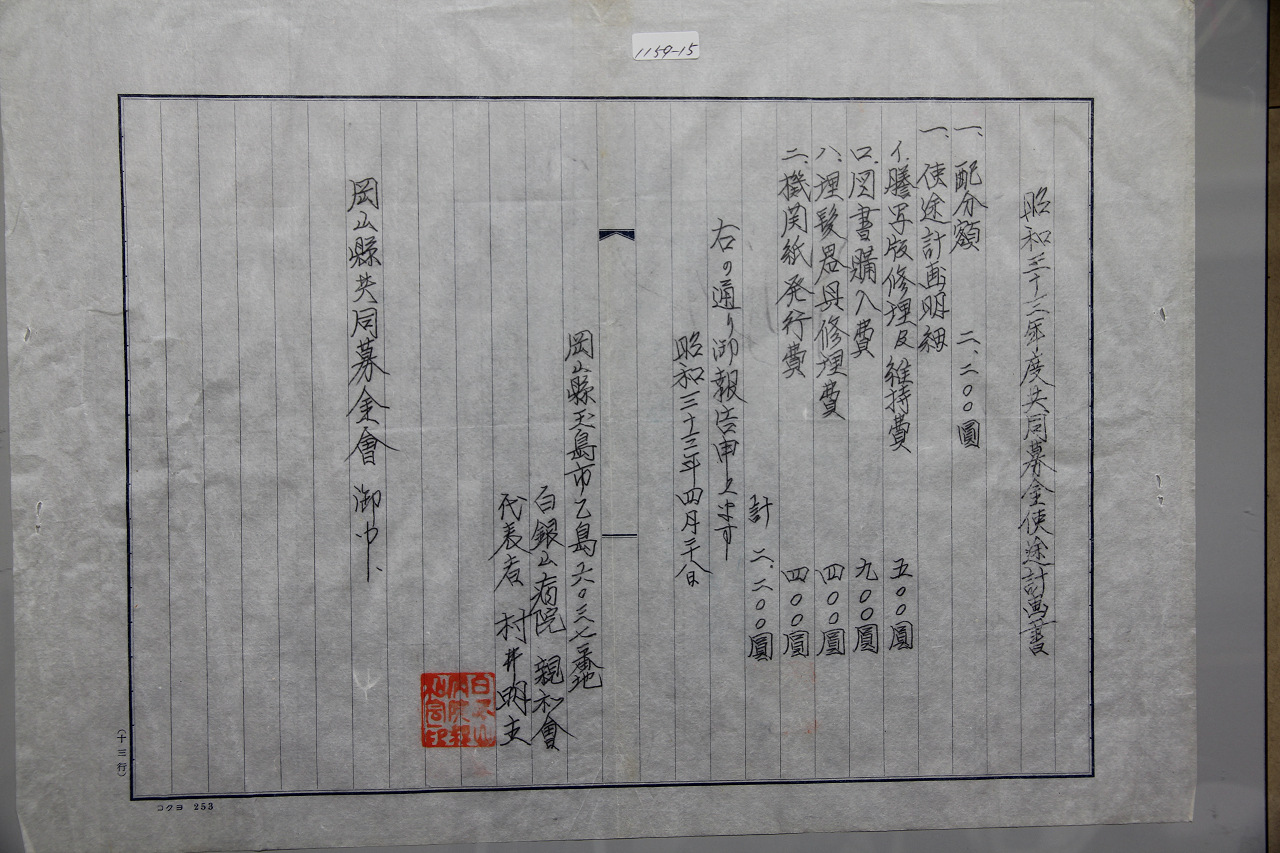 1159-15
昭和三十三年度共同募金使途計画書
一、配分額 二、二〇〇圓
一、使途計画明細
イ、謄写版修理及維持費 五〇〇圓
ロ、図書購入費 九〇〇圓
ハ、理髪器具修理費 四〇〇圓
ニ、機関紙発行費 四〇〇圓
計 二、二〇〇圓
右の通り御報告申上ます
昭和三十三年四月二十八日
岡山縣玉島市乙島六〇三七番地
白銀山病院 親和會
代表者 村井明支
岡山縣共同募金會 御中、
(十三行)
コクヨ 253